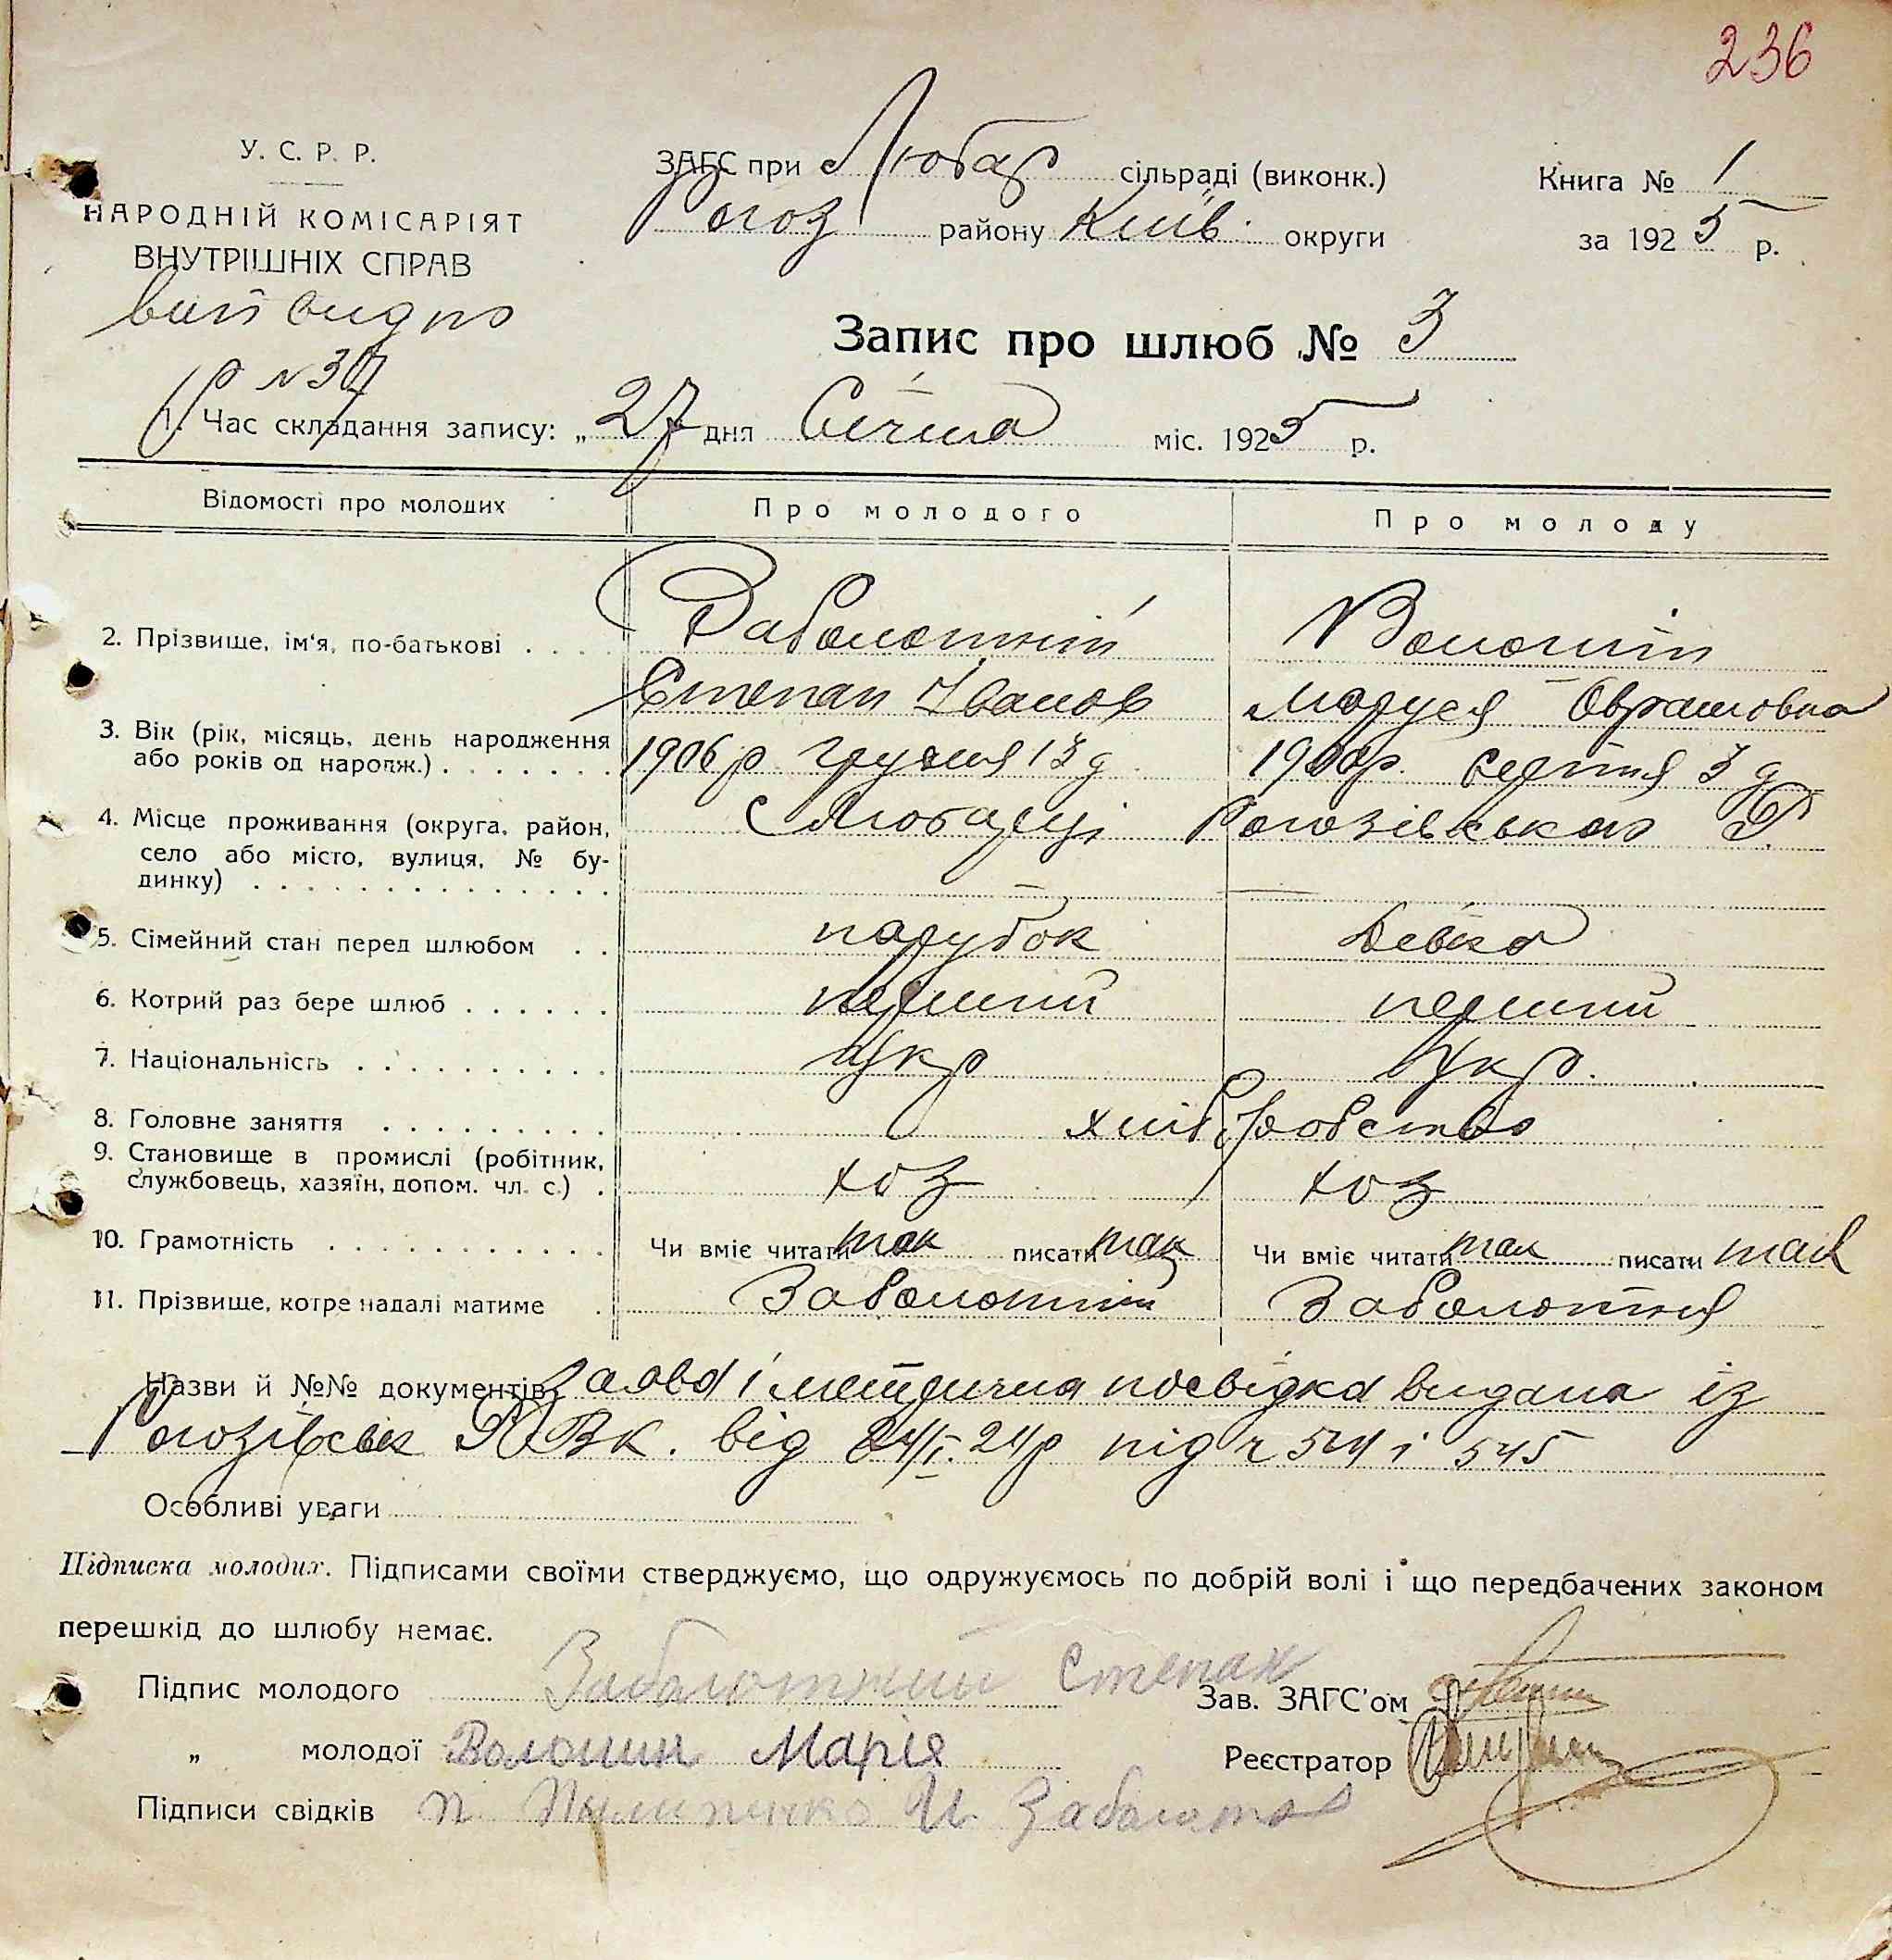 236
У. С. Р. Р.
НАРОДНІЙ КОМІСАРІЯТ
ВНУТРІШНІХ СПРАВ
ЗАГС при Любар сільраді (виконк.)
Рогоз району Київ. округи
Книга № 1
за 1925 р.
Запис про шлюб № 3
1. Час складання запису: „27 дня Січня міс. 1925 р.
Відомості про молодих Про молодого Про молоду
2. Прізвище, ім'я, по-батькові Заболотній Волошін
Степан Іванов Маруся Оврамовна
3. Вік (рік, місяць, день народження
або років од народж.) 1906 р грудня 13 д серпня 3 д
4. Місце проживання (округа, район,
село або місто, вулиця, № бу-
динку) с Любарці Рогозівського Р
5. Сімейний стан перед шлюбом парубок Девка
6. Котрий раз бере шлюб перший перший
7. Національність Укр Укр.
8. Головне заняття хліборобство
9. Становище в промислі (робітник,
службовець, хазяїн, допом. чл. с.) хоз хоз
10. Грамотність Чи вміє читати так писати так Чи вміє читати так писати так
11. Прізвище, котре надалі матиме Заболотній Заболотня
Назви й №№ документів Заява і метрична посвідка видана із
Рогозівськ РВК. від 24р під 545
Особливі уваги
Підписка молодих. Підписами своїми стверджуємо, що одружуємось по добрій волі і що передбачених законом
перешкід до шлюбу немає.
Підпис молодого Заболотний Степан
Зав. ЗАГС'ом
„ молодої Волошин Марія
Реєстратор
Підписи свідків П Пилипенко И Заболот